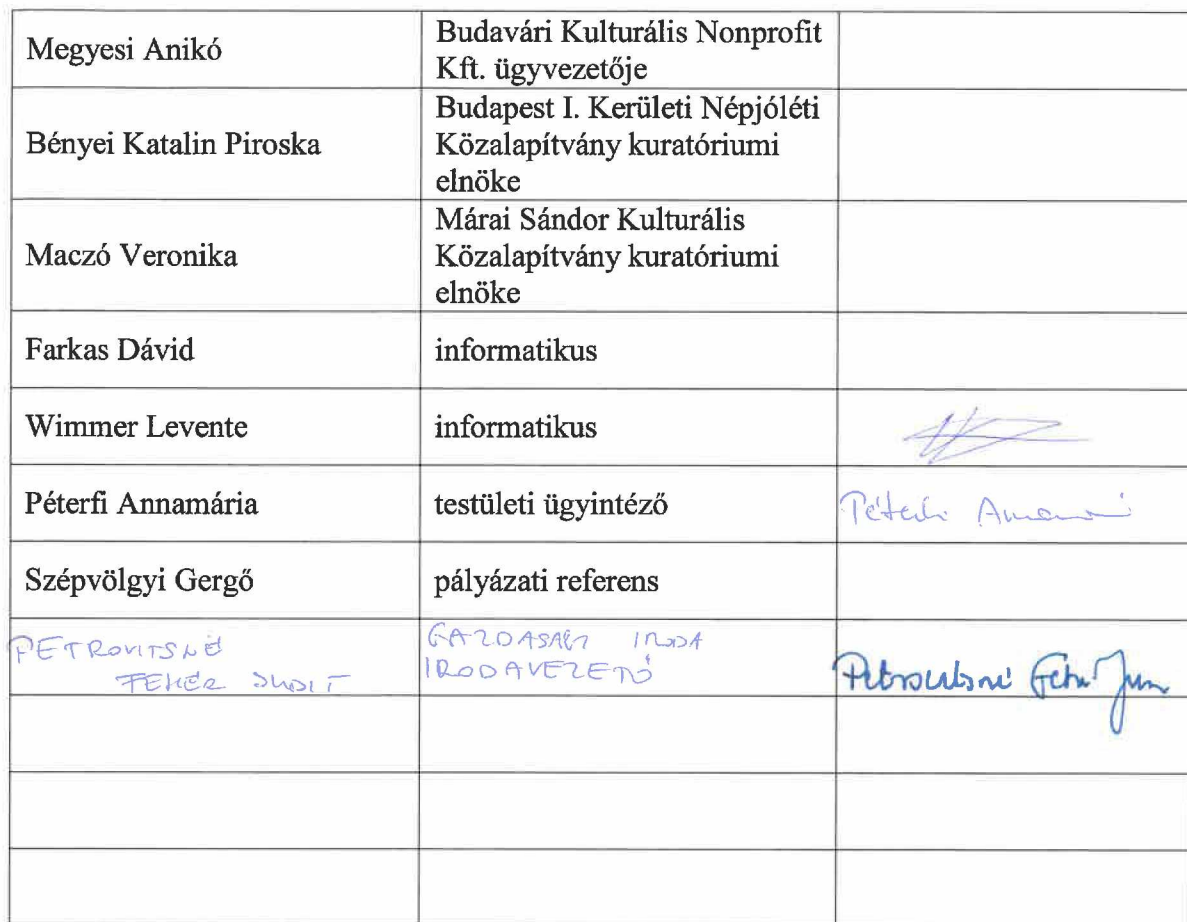 Megyesi Anikó
Budavári Kulturális Nonprofit
Kft. ügyvezetője
Bényei Katalin Piroska
Budapest I. Kerületi Népjóléti
Közalapítvány kuratóriumi
elnöke
Maczó Veronika
Márai Sándor Kulturális
Közalapítvány kuratóriumi
elnöke
Farkas Dávid
informatikus
Wimmer Levente
informatikus
Péterfi Annamária
testületi ügyintéző
Szépvölgyi Gergő
pályázati referens
PETROVITSNÉ
FEHÉR JUDIT
GAZDASÁGI IRODA
IRODAVEZETŐ